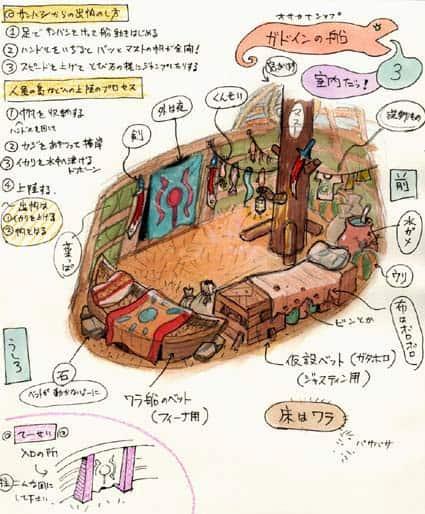 ◎サンバシからの出帆のし方
① 足でサンバシをけって船動きはじめる
② ハンドルをいぢるとバッとマストの帆が全開!
③ スピードを上げてとびあの様にジャンプしたりする
人魚の島などへの上陸のプロセス
① 帆を収納する
ハンドルを回す
② カヂをあやつって接岸
③ イカリを水中に沈ける
ドボーン
④ 上陸する.
〜出帆は
①イカリを上げる
②帆をはる
オサカナシップ
ガドインの船
室内だっ!
3
外は夜
くんせい
マスト
剣
洗濯もの
前
水ガメ
ウリ
布はボロボロ
ビンとか
葉っぱ
うしろ
石
ベットが動かないよーに
ワラ船のベット
(フィーナ用)
仮設ベット(ガタボロ)
(ジャスティン用)
床はワラ
パサパサ
◎てーせい◎
入口の所
柱
こんな図に
して下さい.